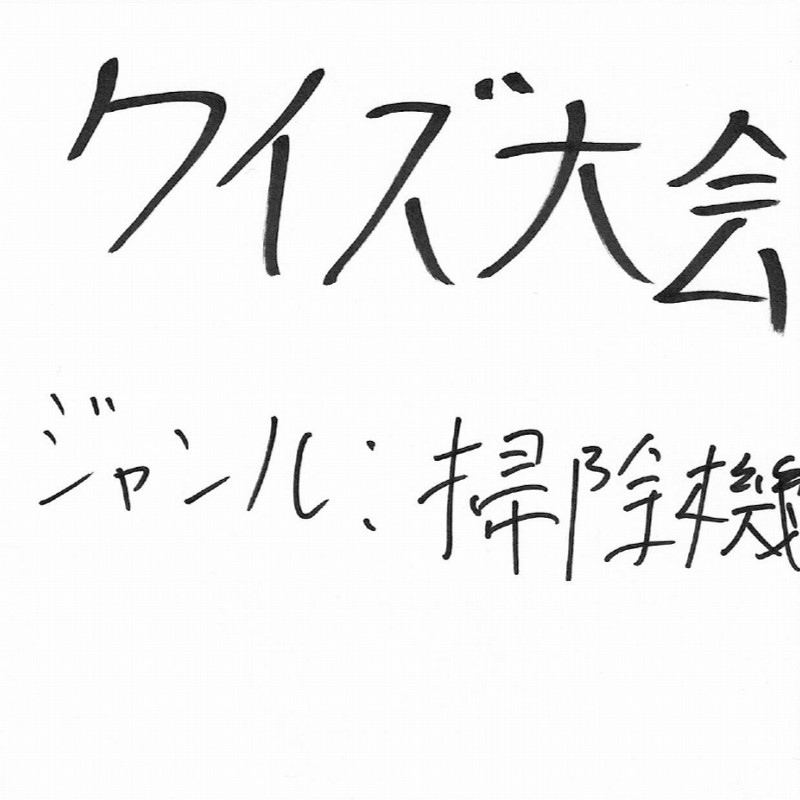 クイズ大会
ジャンル：掃除機